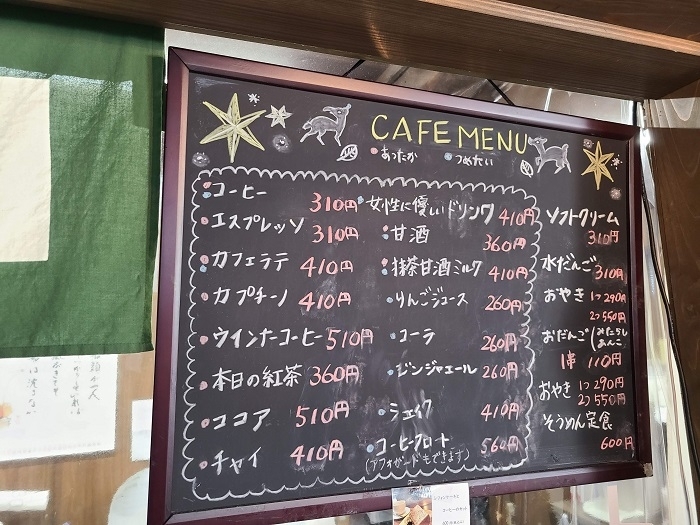 CAFE MENU
あったか つめたい
コーヒー 310円
エスプレッソ 310円
カフェラテ 410円
カプチーノ 410円
ウインナーコーヒー 510円
本日の紅茶 360円
ココア 510円
チャイ 410円
女性に優しいドリンク 410円
甘酒 360円
抹茶甘酒ミルク 410円
りんごジュース 260円
コーラ 260円
ジンジャエール 260円
シェイク 410円
コーヒーフロート 560円
(アフォガードもできます)
ソフトクリーム
310円
水だんご 310円
おやき 1つ 290円
2つ 550円
おだんご(みたらし
あんこ
1串 110円
おやき 1つ 290円
2つ 550円
そうめん定食
600円